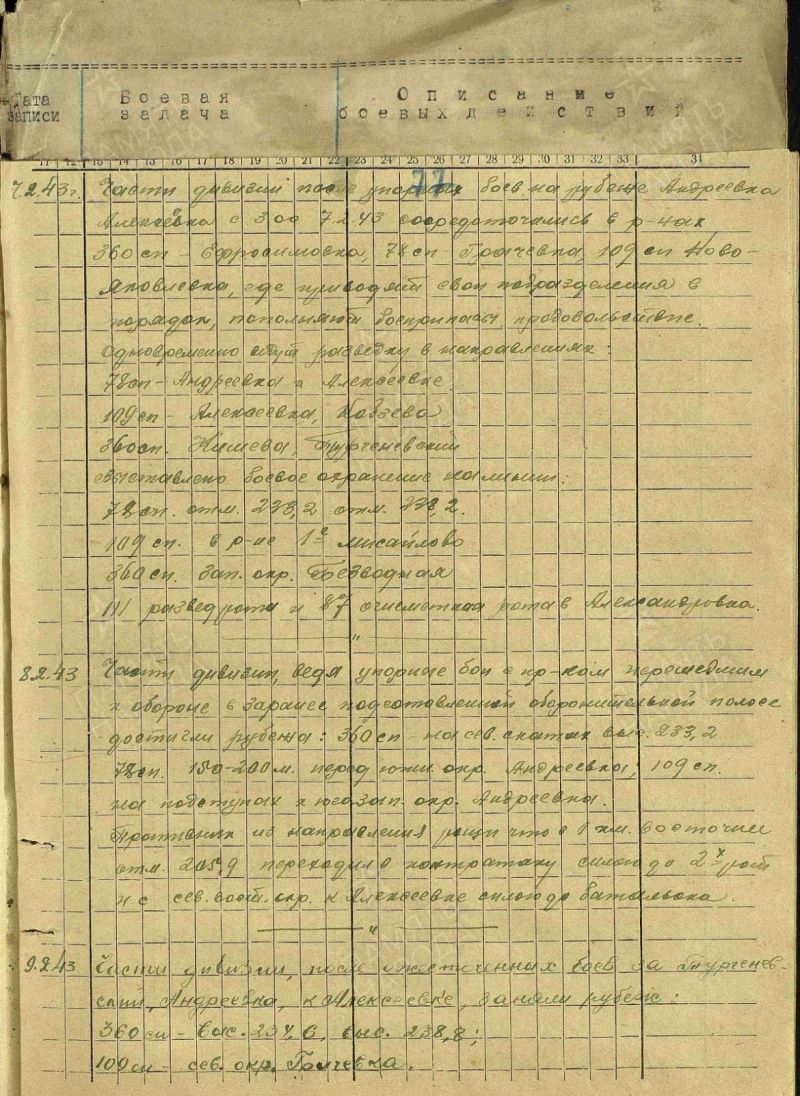 Дата записи
Боевая задача
Описание боевых действий
11 12 13 14 15 16 17 18 19 20 21 22 23 24 25 26 27 28 29 30 31 32 33 31
77
7.2.43г. Части дивизии после упорных боев на рубеже Андреевка
Алексеевка с 3 00 7.2.43 сосредоточились в р-нах
360сп - Ефросимовка, 78сп - Грачевка, 109сп Ново-
Яковлевка, где приводят свои подразделения в
порядок, пополняют боеприпасы, продовольствие.
Одновременно ведут разведку в направлениях:
78сп - Андреевка и Алексеевке
109сп - Алексеевка,
360сп.
Выставлено боевое охранение на линии:
78сп. отм. 233,2 отм. 238,2.
109сп. в р-не 1е
360сп. зап. окр. Безводная
111 разведрота и 87 рота в Александровка.
"
8.2.43 Части дивизии, ведя упорные бои с пр-ком перешедшим
к обороне в заранее подготовленной оборонительной полосе
достигли рубежа: 360сп - на сев. скатах выс. 233,2
78сп. 150-200м. перед южн. окр. Андреевка; 109сп.
на подступах к югозап. окр. Андреевка.
Противник из направления рощи что в 1 км. восточнее
отм. 205,9 переходил в контратаку силою до 2х рот
и с сев. вост. окр. к Алексеевке силою до батальона.
"
9.2.43 Части дивизии, после ожесточенных боев за Тургенев-
ский, Андреевка, к Алексеевке, заняли рубеж:
360сп - выс. 234,6, выс. 238,8;
109сп - сев. окр.